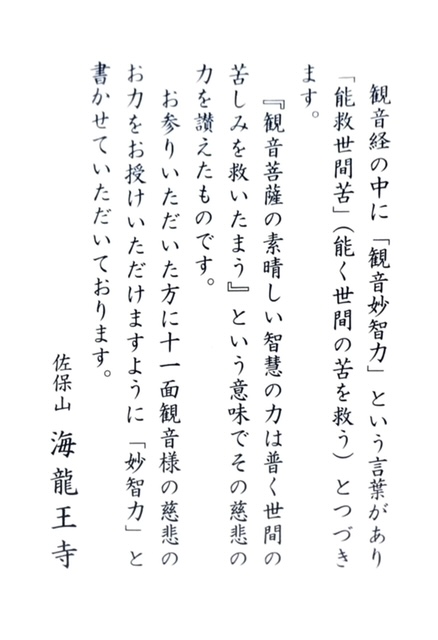 観音経の中に「観音妙智力」という言葉があり
「能救世間苦」（能く世間の苦を救う）とつづき
ます。
『観音菩薩の素晴しい智慧の力は普く世間の
苦しみを救いたまう』という意味でその慈悲の
力を讃えたものです。
お参りいただいた方に十一面観音様の慈悲の
お力をお授けいただけますように「妙智力」と
書かせていただいております。
佐保山 海龍王寺